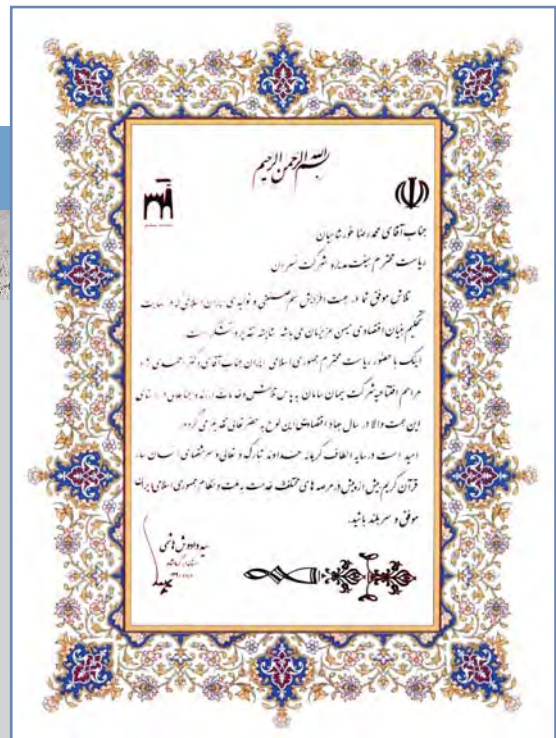 بسم الله الرحمن الرحیم
جناب آقای محمدرضا
ریاست محترم هیئت مدیره شرکت
تلاش موفق شما در جهت افزایش سهم صنعتی و تولیدی ایران اسلامی که در نهایت
تحکیم بنیان اقتصادی میهن عزیزمان می باشد شایسته تقدیر و تشکر است
اینک با حضور ریاست محترم جمهوری اسلامی ایران جناب آقای دکتر احمدی نژاد در
مراسم افتتاحیه شرکت سیمان سامان به پاس تلاش و خدمات ارزنده جنابعالی در راستای
این همت والا در سال جهاد اقتصادی این لوح به حضرتعالی تقدیم می گردد
امید است در سایه الطاف کریمانه خداوند تبارک و تعالی و سرمشقهای انسان ساز
قرآن کریم بیش از پیش در عرصه های مختلف خدمت به ملت و نظام جمهوری اسلامی ایران
موفق و سربلند باشید.
سید دادوش هاشمی
استاندار کرمانشاه